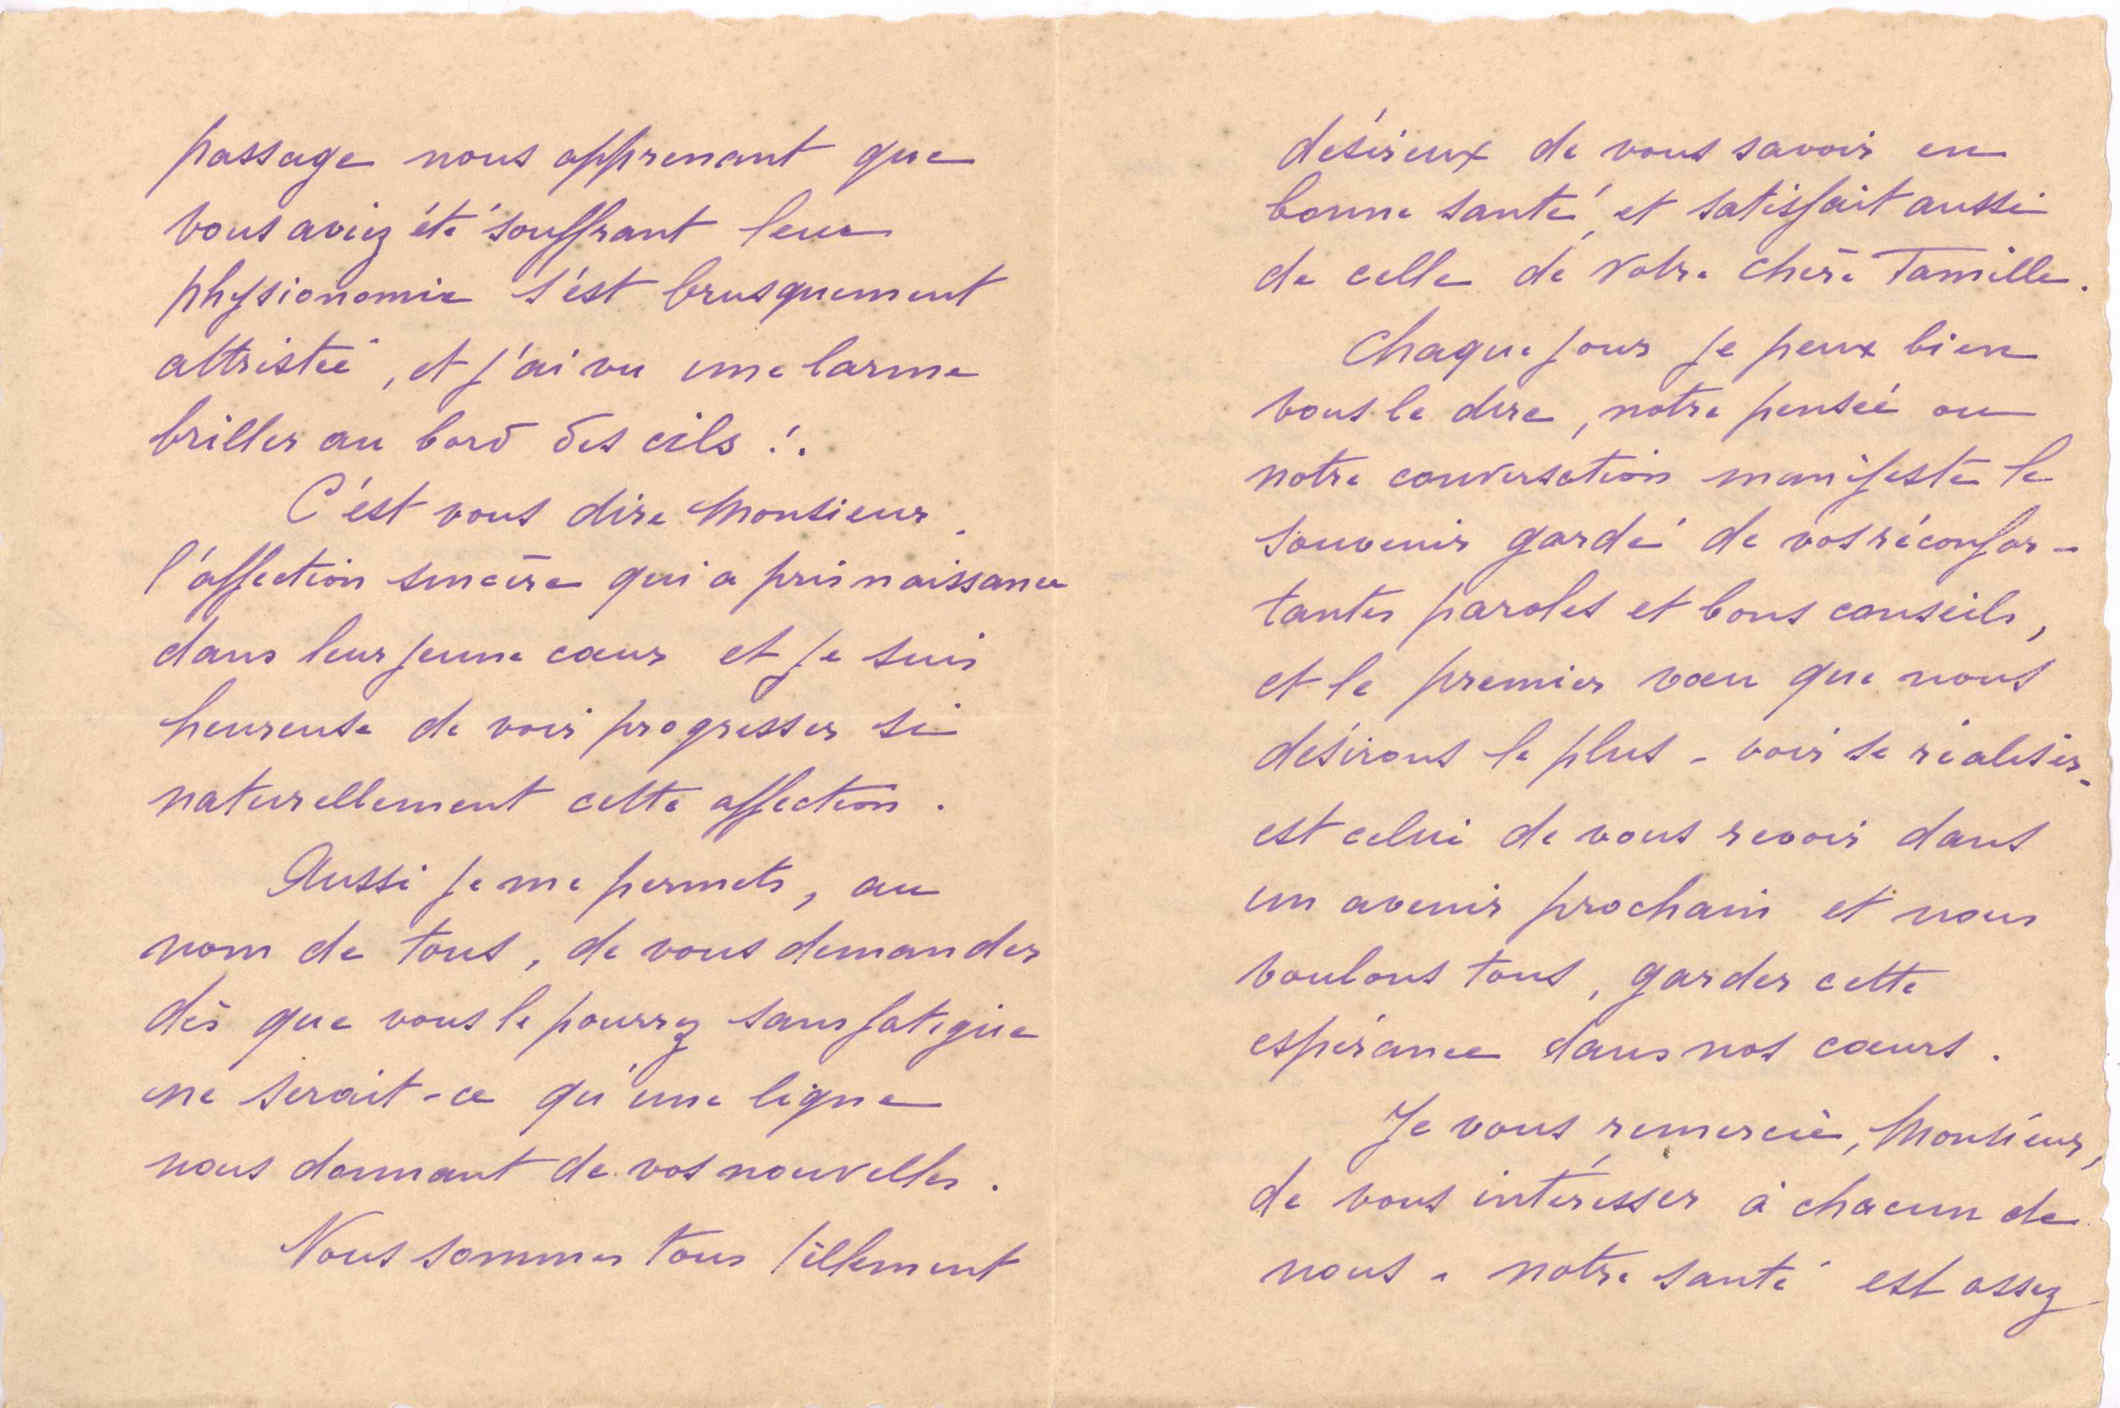 passage nous apprenant que
vous aviez été souffrant leur
physionomie s'est brusquement
attristée, et j'ai vu une larme
briller au bord des cils !.
C'est vous dire Monsieur.
l'affection sincère qui a pris naissance
dans leur jeune cœur et je suis
heureuse de voir progresser si
naturellement cette affection.
Aussi je me permets, au
nom de tous, de vous demander
dès que vous le pourrez sans fatigue
ne serait-ce qu'une ligne
nous donnant de vos nouvelles.
Nous sommes tous tellement
désireux de vous savoir en
bonne santé, et satisfait aussi
de celle de votre chère Famille.
Chaque jour je peux bien
vous le dire, notre pensée ou
notre conversation manifeste le
souvenir gardé de vos réconfor-
tantes paroles et bons conseils,
et le premier vœu que nous
désirons le plus - voir se réaliser -
est celui de vous revoir dans
un avenir prochain et nous
voulons tous, garder cette
espérance dans nos cœurs.
Je vous remercie, Monsieur,
de vous intéresser à chacun de
nous - notre santé est assez